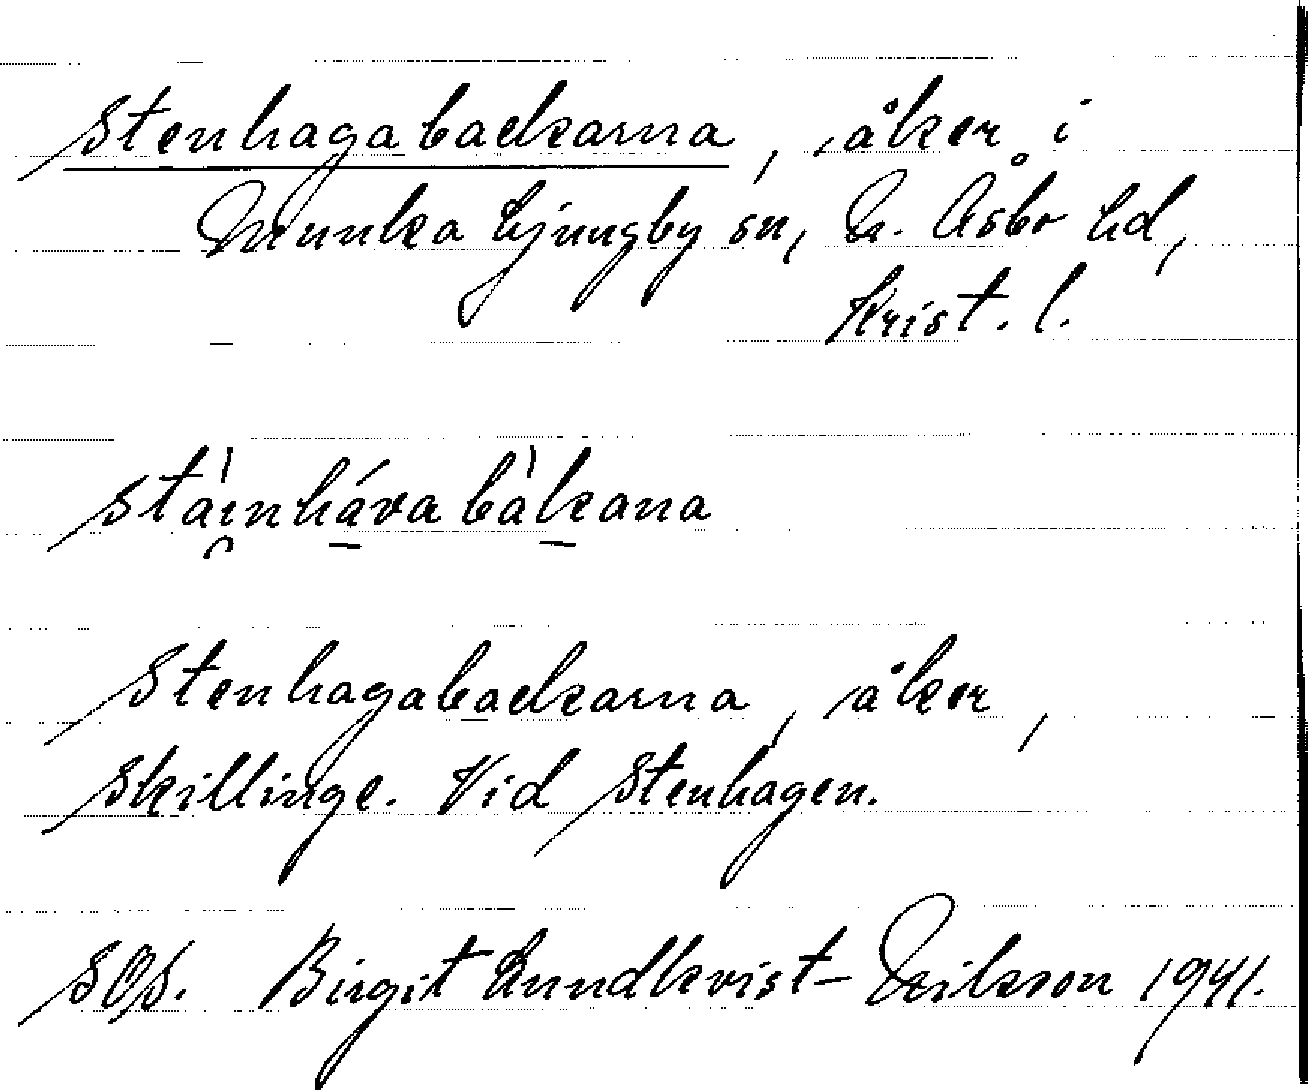 Stenhagabackarna, åker i
Munka Ljungby sn, N. Åsbo hd,
Krist. l.
stàịnháva bàkana
Stenhagabackarna, åker,
Skillinge. Vid Stenhagen.
SOS. Birgit Lundkvist-Eriksson 1941.